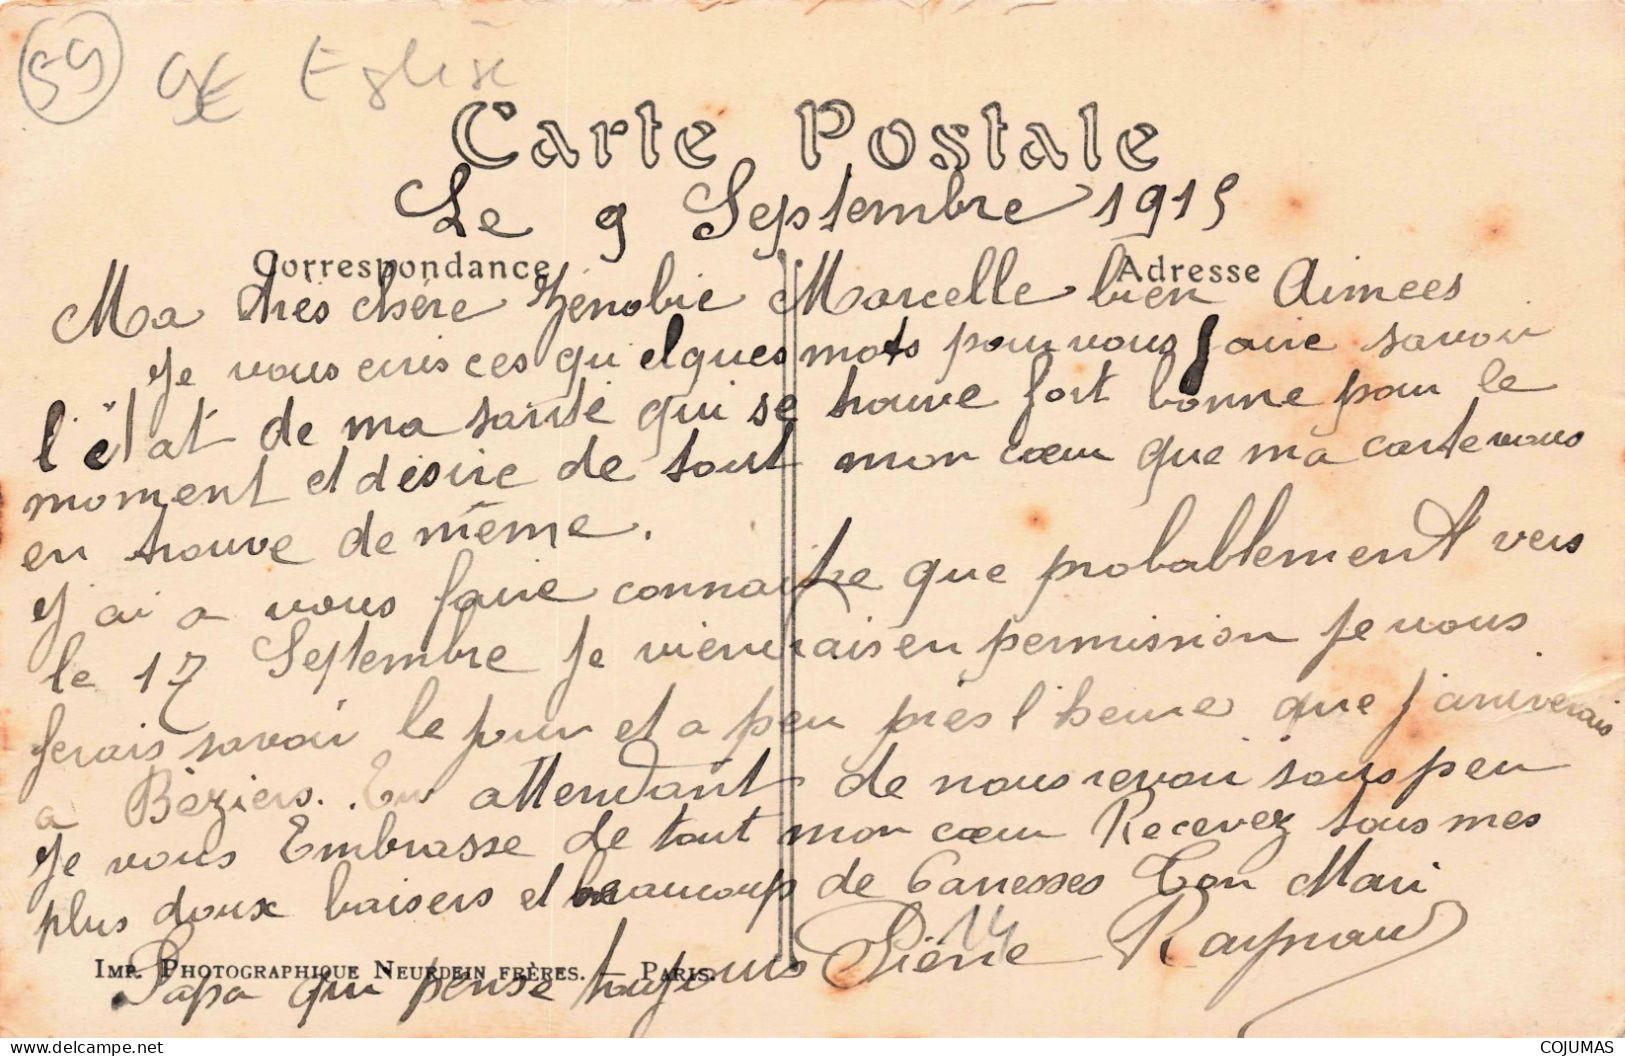 59 Eglise
Carte Postale
Le 9 Septembre 1915
Correspondance Adresse
Ma très chère Zénobie Marcelle bien Aimees
Je vous ecris ces quelques mots pour vous faire savoir
l'état de ma santé qui se trouve fort bonne pour le
moment et désire de tout mon cœur que ma carte vous
en trouve de même.
J'ai a vous faire connaitre que probablement vers
le 17 Septembre je viendrais en permission je vous
ferais savoir le jour et a peu près l'heure que j'arriverais
a Béziers. En attendant de nous revoir sous peu
Je vous Embrasse de tout mon cœur Recevez tous mes
plus doux baisers et beaucoup de Caresses Ton Mari
14
Pierre Raynaud
Imp. Photographique Neurdein frères. — Paris.
Papa qui pense toujours
COJUMAS